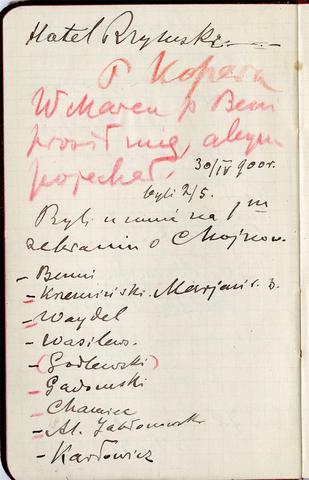 Hotel Rzymski
P. Kopera
W Marcu p Benni
prosił mię, abym
pojechał.
30/IV 900 r.
byli 2/5.
Byli u mnie na 1m
zebraniu o Chojnow.
- Benni
- Kremiński. Marjan
- Waydel
- Wasilew.
- (Godlewski)
- Gadomski
- Chamiec
- Al. Jabłonowski
- Karłowicz